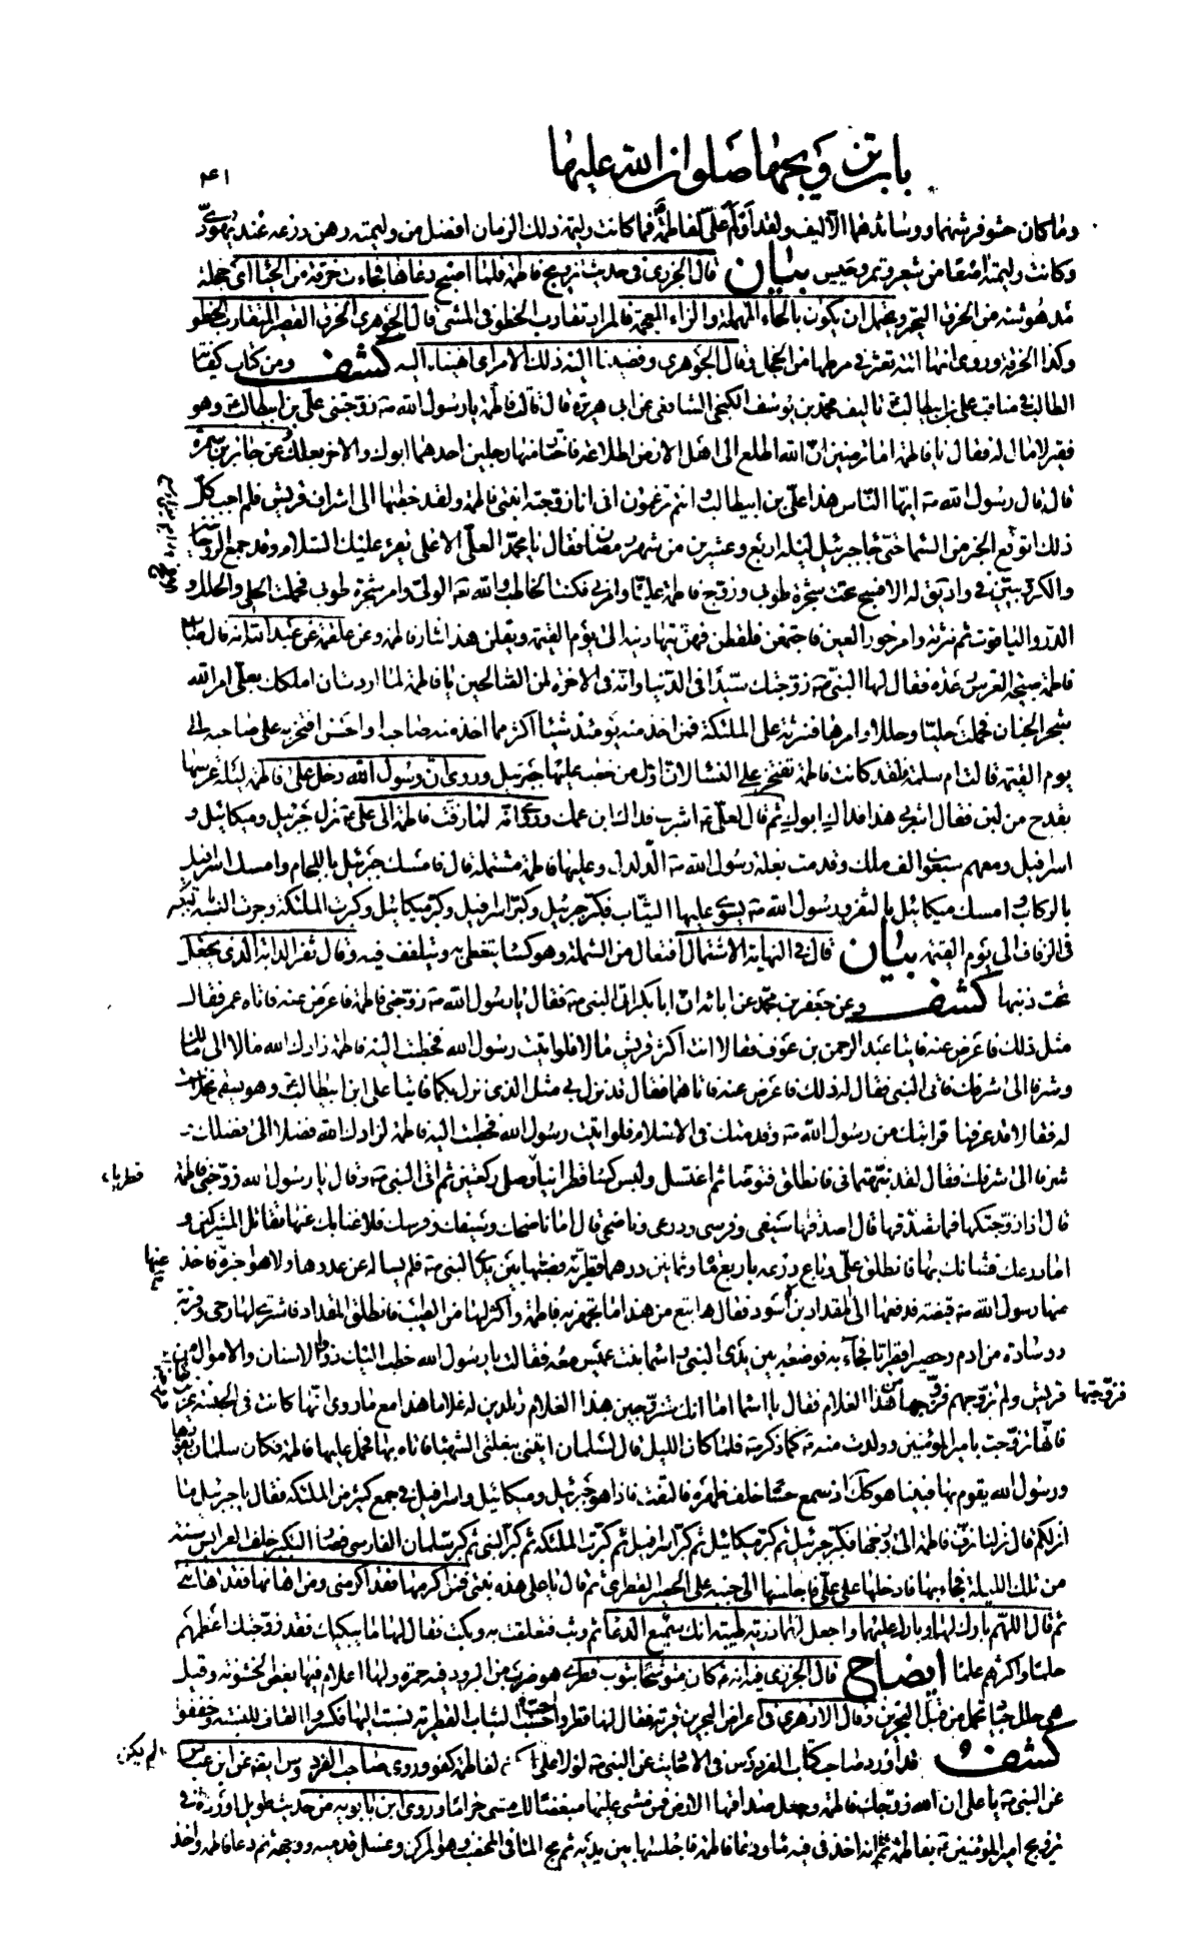 باب تزويجها صلوات الله عليها
٤١
وما كان حشو فرشهما ووسائدهما الا ليف ولقد أولم علىّ لفاطمة فما كانت وليمة ذلك الزمان افضل من وليمته رهن درعه عند يهودىّ
وكانت وليمته آصعا من شعير وتمر وحيس بيان قال الجزرى فى حديث تزويج فاطمة فلما اصبح دعاها فجاءت خرقة من الحياء اى خجلة
مدهوشة من الخرق التحير ويحتمل ان يكون بالحاء المهملة والزاء المعجمة فالمراد تقارب الخطو فى المشى قال الجوهرى الحزق القصير المتقارب الخطو
وكذا الحزقة وروى انها اتته تعثر فى مرطها من الخجل وقال الجوهرى وقضينا اليه ذلك الامر اى انهيناه اليه كشف ومن كتاب كفاية
الطالب فى مناقب على بن ابيطالب تاليف محمد بن يوسف الكنجى الشافعى عن ابى هريرة قال قالت فاطمة يا رسول الله زوجتنى على بن ابيطالب وهو
فقير لا مال له فقال يا فاطمة اما ترضين انّ الله اطلع الى اهل الارض اطلاعة فاختار منها رجلين احدهما ابوك والاخر بعلك وعن جابر بن سمرة
قال قال رسول الله ايها النّاس هذا علىّ بن ابيطالب وانتم تزعمون انى انا زوجته ابنتى فاطمة ولقد خطبها الىّ اشراف قريش فلم اجب كلّ
ذلك اتوقع الخبر من السماء حتى جاء جبرئيل ليلة اربع وعشرين من شهر رمضان فقال يا محمد العلىّ الاعلى يقرء عليك السلام وقد جمع الروحانيين
والكروبيين فى واد يقال له الافيح تحت شجرة طوبى وزوج فاطمة عليا وامرنى فكنت الخاطب والله الولىّ وامر شجرة طوبى فحملت الحلى والحلل و
الدر والياقوت ثم نثرته وامر حور العين فاجتمعن فلقطن فهنّ يتهادينه الى يوم القيمة ويقلن هذا نثار فاطمة وعن علقمة عن عبد الله انه قال اصاب
فاطمة صبيحة العرس رعدة فقال لها النبى زوجتك سيّدا فى الدنيا وانّه فى الاخرة لمن الصالحين يا فاطمة لما اردت ان املكك بعلى امر الله
شجر الجنان فحملت حليا وحللا وامرها فنثرته على الملئكة فمن اخذ منه يومئذ شيئا اكثر مما اخذ منه صاحبه او احسن افتخر به على صاحبه الى
يوم القيمة قالت ام سلمة ولقد كانت فاطمة تفتخر على النساء لانّ اوّل من خطب عليها جبرئيل وروى انّ رسول الله دخل على فاطمة ليلة عرسها
بقدح من لبن فقال اشربى هذا فداك ابوك ثم قال لعلىّ اشرب فداك ابن عمك وروى انّه لما زفت فاطمة الى علىّ نزل جبرئيل وميكائيل و
اسرافيل ومعهم سبعون الف ملك وقدمت بغلة رسول الله الدّلدل وعليها فاطمة مشتملة قال فامسك جبرئيل باللجام وامسك اسرافيل
بالركاب وامسك ميكائيل بالثفر ورسول الله يسوى عليها الثياب فكبّر جبرئيل وكبّر اسرافيل وكبّر ميكائيل وكبرت الملئكة وجرت السنّة بالتكبير
فى الزفاف الى يوم القيمة بيان قال فى النهاية الاشتمال افتعال من الشملة وهو كساء يتغطى به ويتلفف فيه وقال ثفر الدابة الذى يجعل
تحت ذنبها كشف وعن جعفر بن محمد عن ابائه انّ ابا بكر اتى النبى فقال يا رسول الله زوّجنى فاطمة فاعرض عنه فاتاه عمر فقال
مثل ذلك فاعرض عنه فاتيا عبد الرحمن بن عوف فقالا انت اكثر قريش مالا فلو اتيت رسول الله فخطبت اليه فاطمة زادك الله مالا الى مالك
وشرفا الى شرفك فاتى النبى فقال له ذلك فاعرض عنه فاتاهما فقال قد نزل بى مثل الذى نزل بكما فاتيا على ابن ابيطالب وهو يسقى نخلات
له فقالا قد عرفنا قرابتك من رسول الله وقدمتك فى الاسلام فلو اتيت رسول الله فخطبت اليه فاطمة لزادك الله فضلا الى فضلك
شرفا الى شرفك فقال لقد نبهتمانى فانطلق فتوضا ثم اغتسل ولبس كساء قطريا وصلى ركعتين ثم اتى النبى وقال يا رسول الله زوجنى فاطمة
قطريا
قال اذا زوجتكها فما تصدقها قال اصدقها سيفى وفرسى ودرعى وناضحى قال اما ناضحك وسيفك وفرسك فلا غنا بك عنها تقاتل المشركين و
اما درعك فشانك بها فانطلق علىّ وباع درعه باربع مأة وثمانين درهما قطرية فصبّها بين يدى النبى فلم يساله عن عددها ولا هو اخبره فاخذ
عنها
منها رسول الله قبضة فدفعها الى المقداد بن الاسود فقال ابتع من هذا ما تجهز به فاطمة واكثر لها من الطيب فانطلق المقداد فاشترى لها رحى وقربة
ووسادة من ادم وحصيرا قطريا فجاء به فوضعه بين يدى النبى واسماء بنت عميس معه فقالت يا رسول الله خطب اليك ذووا الاسنان والاموال من
قريش ولم تزوجهم فزوجتها من هذا الغلام فقال يا اسماء اما انك ستزوجين بهذا الغلام وتلدين له غلاما هذا مع ما روى انّها كانت فى الحبشة
فزوجتها
فانّها تزوجت بامير المؤمنين وولدت منه كما ذكر فلما كان الليل قال لسلمان ايتنى ببغلتى الشهباء فاتاه بها فحمل عليها فاطمة فكان سلمان يقودها
ورسول الله يقوم بها فبينا هو كذلك اذ سمع حسّا خلف ظهره فالتفت فاذا هو جبرئيل وميكائيل واسرافيل فى جمع كثير من الملئكة فقال يا جبرئيل ما
انزلكم قال نزلنا نزف فاطمة الى زوجها فكبّر جبرئيل ثم كبّر ميكائيل ثم كبّر اسرافيل ثم كبّرت الملئكة ثم كبّر النبى ثم كبّر سلمان الفارسى فصار التكبير خلف العرايس سنّة
من تلك الليلة فجاء بها فادخلها على علىّ فاجلسها الى جنبه على الحصير القطرى ثم قال يا على هذه بنتى فمن اكرمها فقد اكرمنى ومن اهانها فقد اهاننى
ثم قال اللهم بارك لهما وبارك عليهما واجعل لهما ذرية طيبة انك سميع الدعاء ثم وثب فتعلقت به وبكت فقال لها ما يبكيك فقد زوجتك اعظمهم
حلما واكثرهم علما ايضاح قال الجزرى فيه انه كان متوشحا بثوب قطرى هو ضرب من البرود فيه حمرة ولها اعلام فيها بعض الخشونة وقيل
هى حلل جياد تحمل من قبل البحرين وقال الازهرى فى اعراض البحرين قرية يقال لها قطر واحسب الثياب القطرية نسبت اليها فكسروا القاف للنسبة وخففوا
كشف وقد اورد صاحب كتاب الفردوس فى الاحاديث عن النبى لولا على لم يكن لفاطمة كفو وروى صاحب الفردوس ايضا عن ابن عباس
لم يكن
عن النبى يا على ان الله زوجك فاطمة وجعل صداقها الارض فمن مشى عليها مبغضا لك مشى حراما وروى ابن بابويه من حديث طويل اورده فى
تزويج امير المؤمنين بفاطمة انه اخذ فى فيه ماء ودعا فاطمة فاجلسها بين يديه ثم مج الماء فى المخضب وهو المركن وغسل قدميه ووجهه ثم دعا فاطمة واخذ